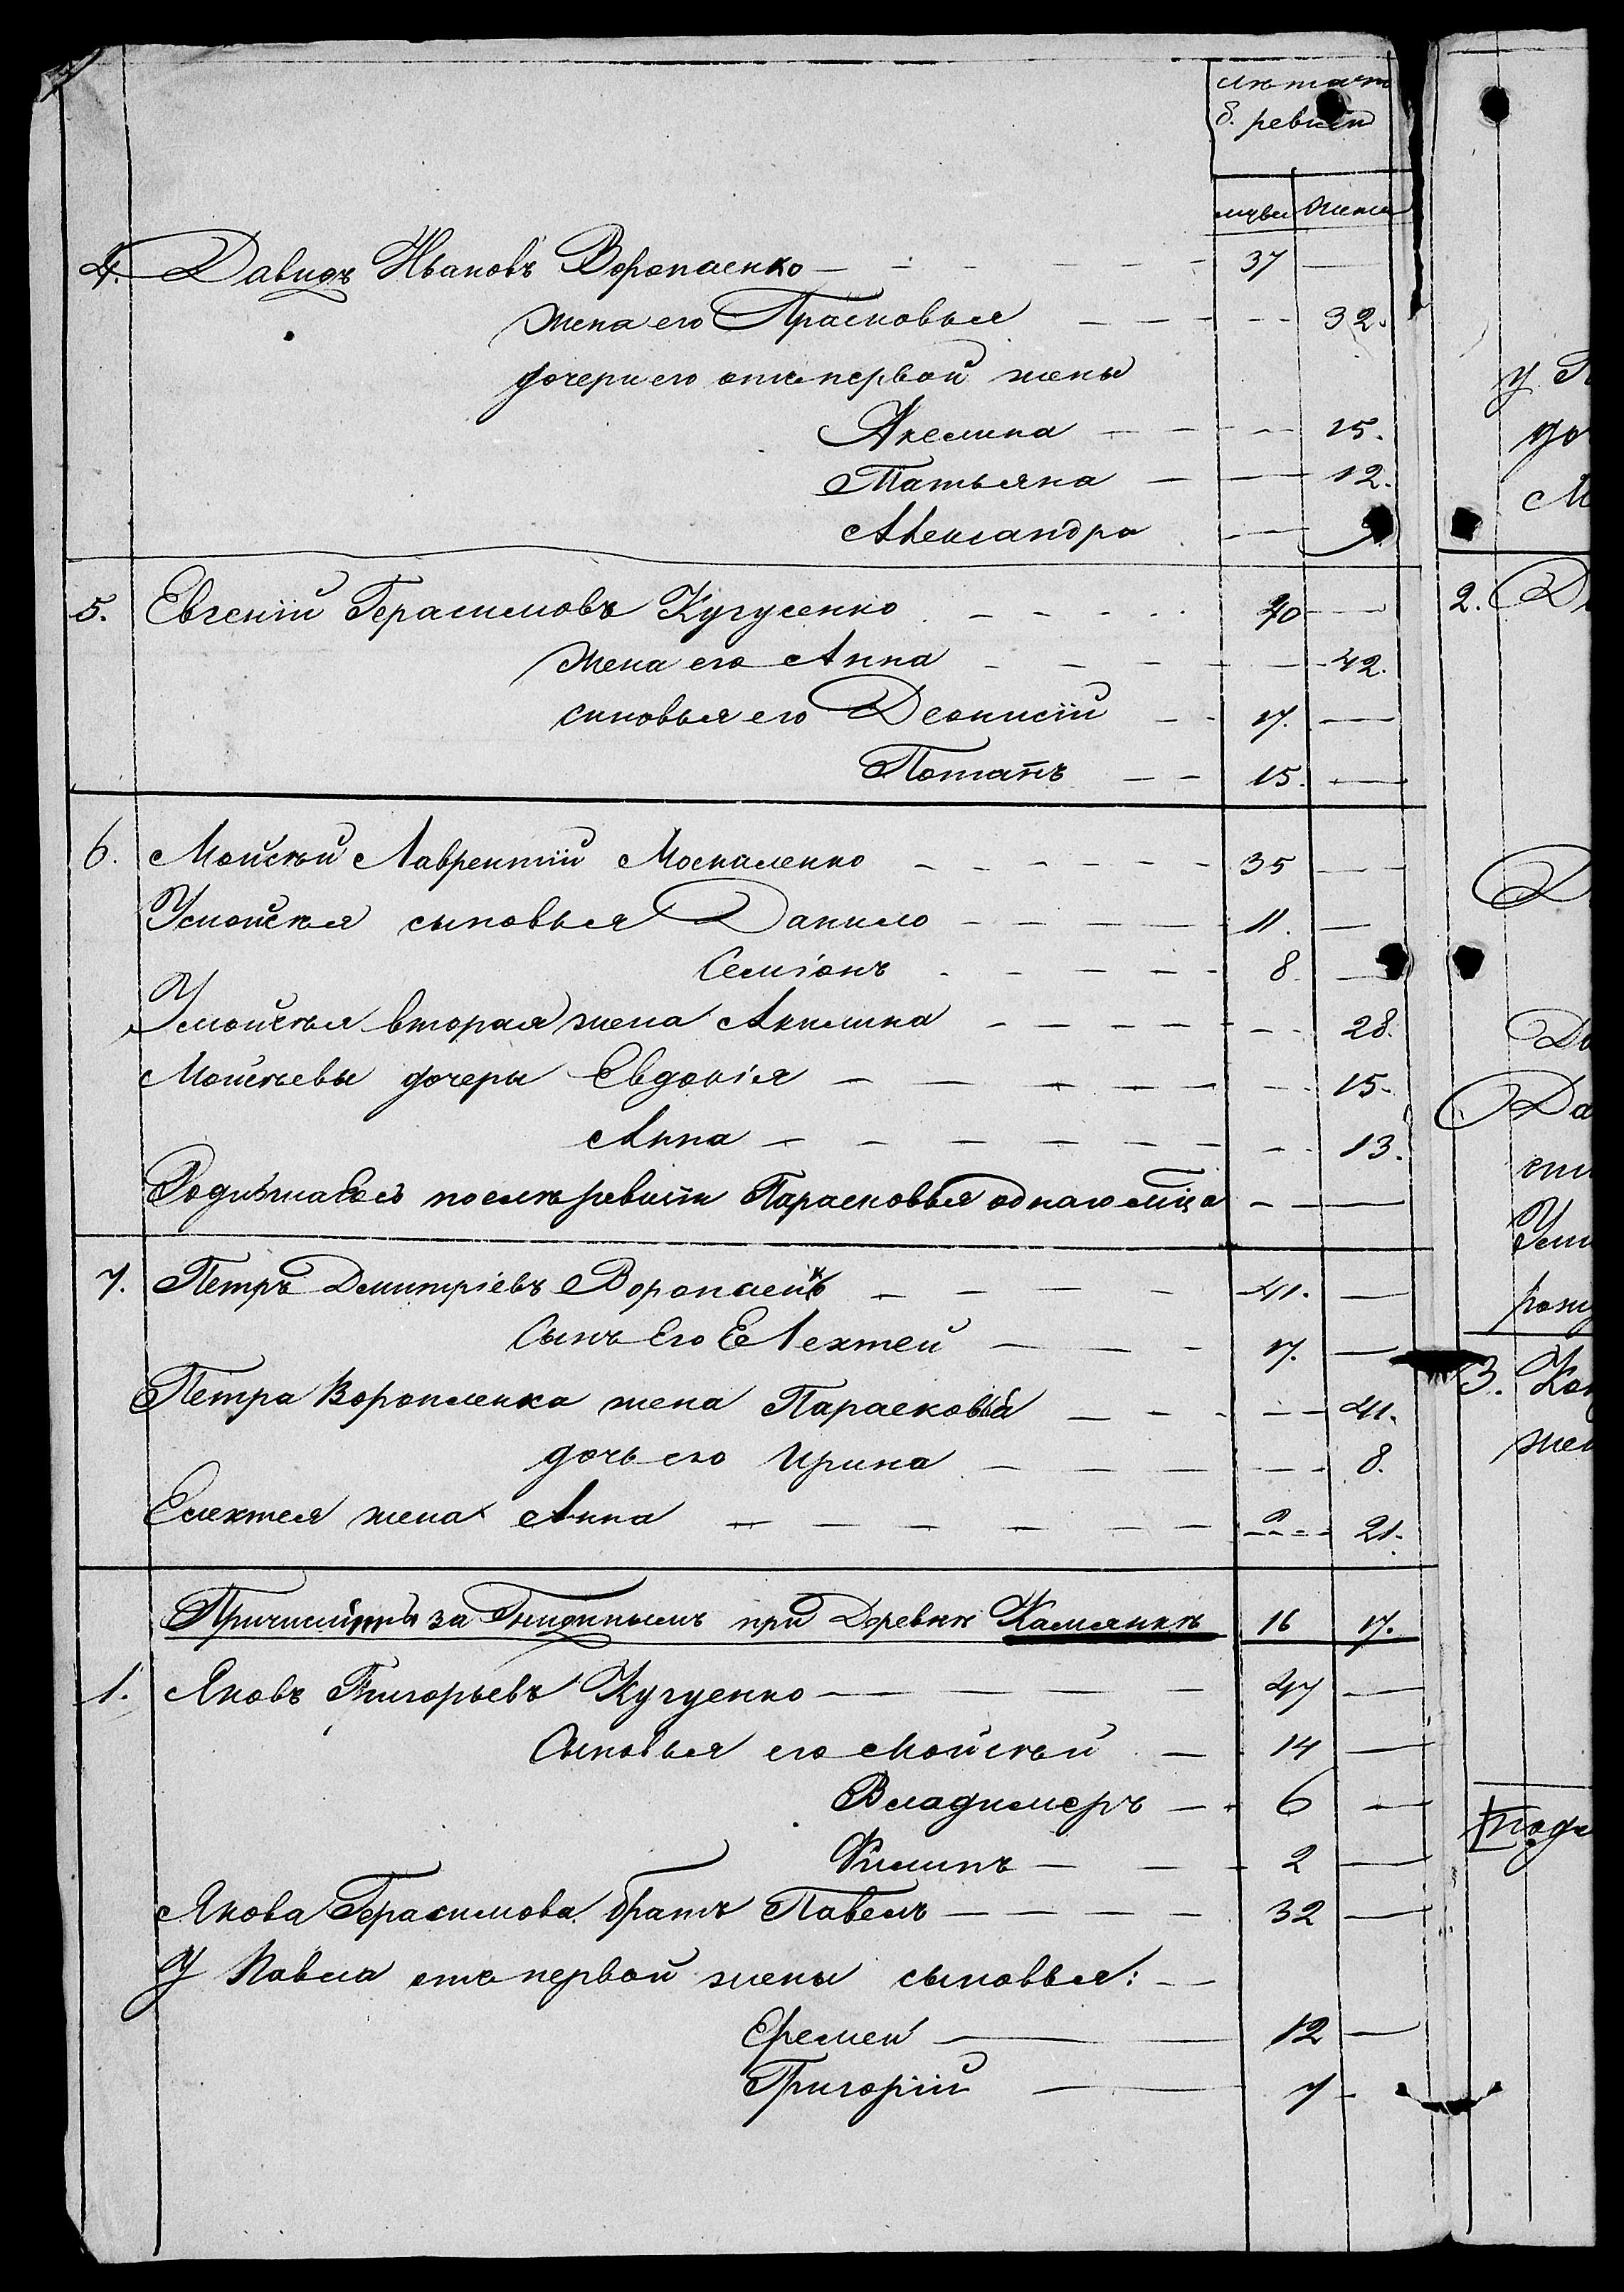 лѣта по
8. ревизіи
мужч женск
4. Давидъ Ивановъ Воропаенко — 37 —
жена его Прасковья — 32.
дочери его отъ первой жены
Акелина — 15.
Татьяна — 12.
Александра —
5. Евгеній Герасимовъ Кугусенко — 40 —
жена его Анна — 42.
сыновья его Деонисій — 17. —
Потапъ — 15. —
6. Мойсѣй Лаврентій Москаленко — 35 —
У Мойсѣя сыновья Данило — 11. —
Семіонъ — 8 —
У мойсѣя вторая жена Акилина — 28.
Мойсѣевы дочеры Евдокія — 15.
Анна — 13.
послѣ ревизіи Парасковья однаго мѣца — —
7. Петръ Дмитріевъ Воропаенко — 41. —
Сынъ Его Елехтей — 17. —
Петра Воропаенка жена Парасковья — 41.
дочь его Ирина — 8.
Елехтея жена Анна — 21.
за Гнидинымъ при Деревнѣ Камянкѣ 16 17.
1. Яковъ Григорьевъ Кугуенко — 47 —
Сыновья его Мойсѣй — 14 —
Владимеръ — 6 —
Филипъ — 2 —
Якова Герасимова братъ Павелъ — 32 —
У Павла отъ первой жены сыновья: —
Еремей — 12 —
Григорій — 7 —
у
до
М
2. Д
Д
До
Да
3.
жен